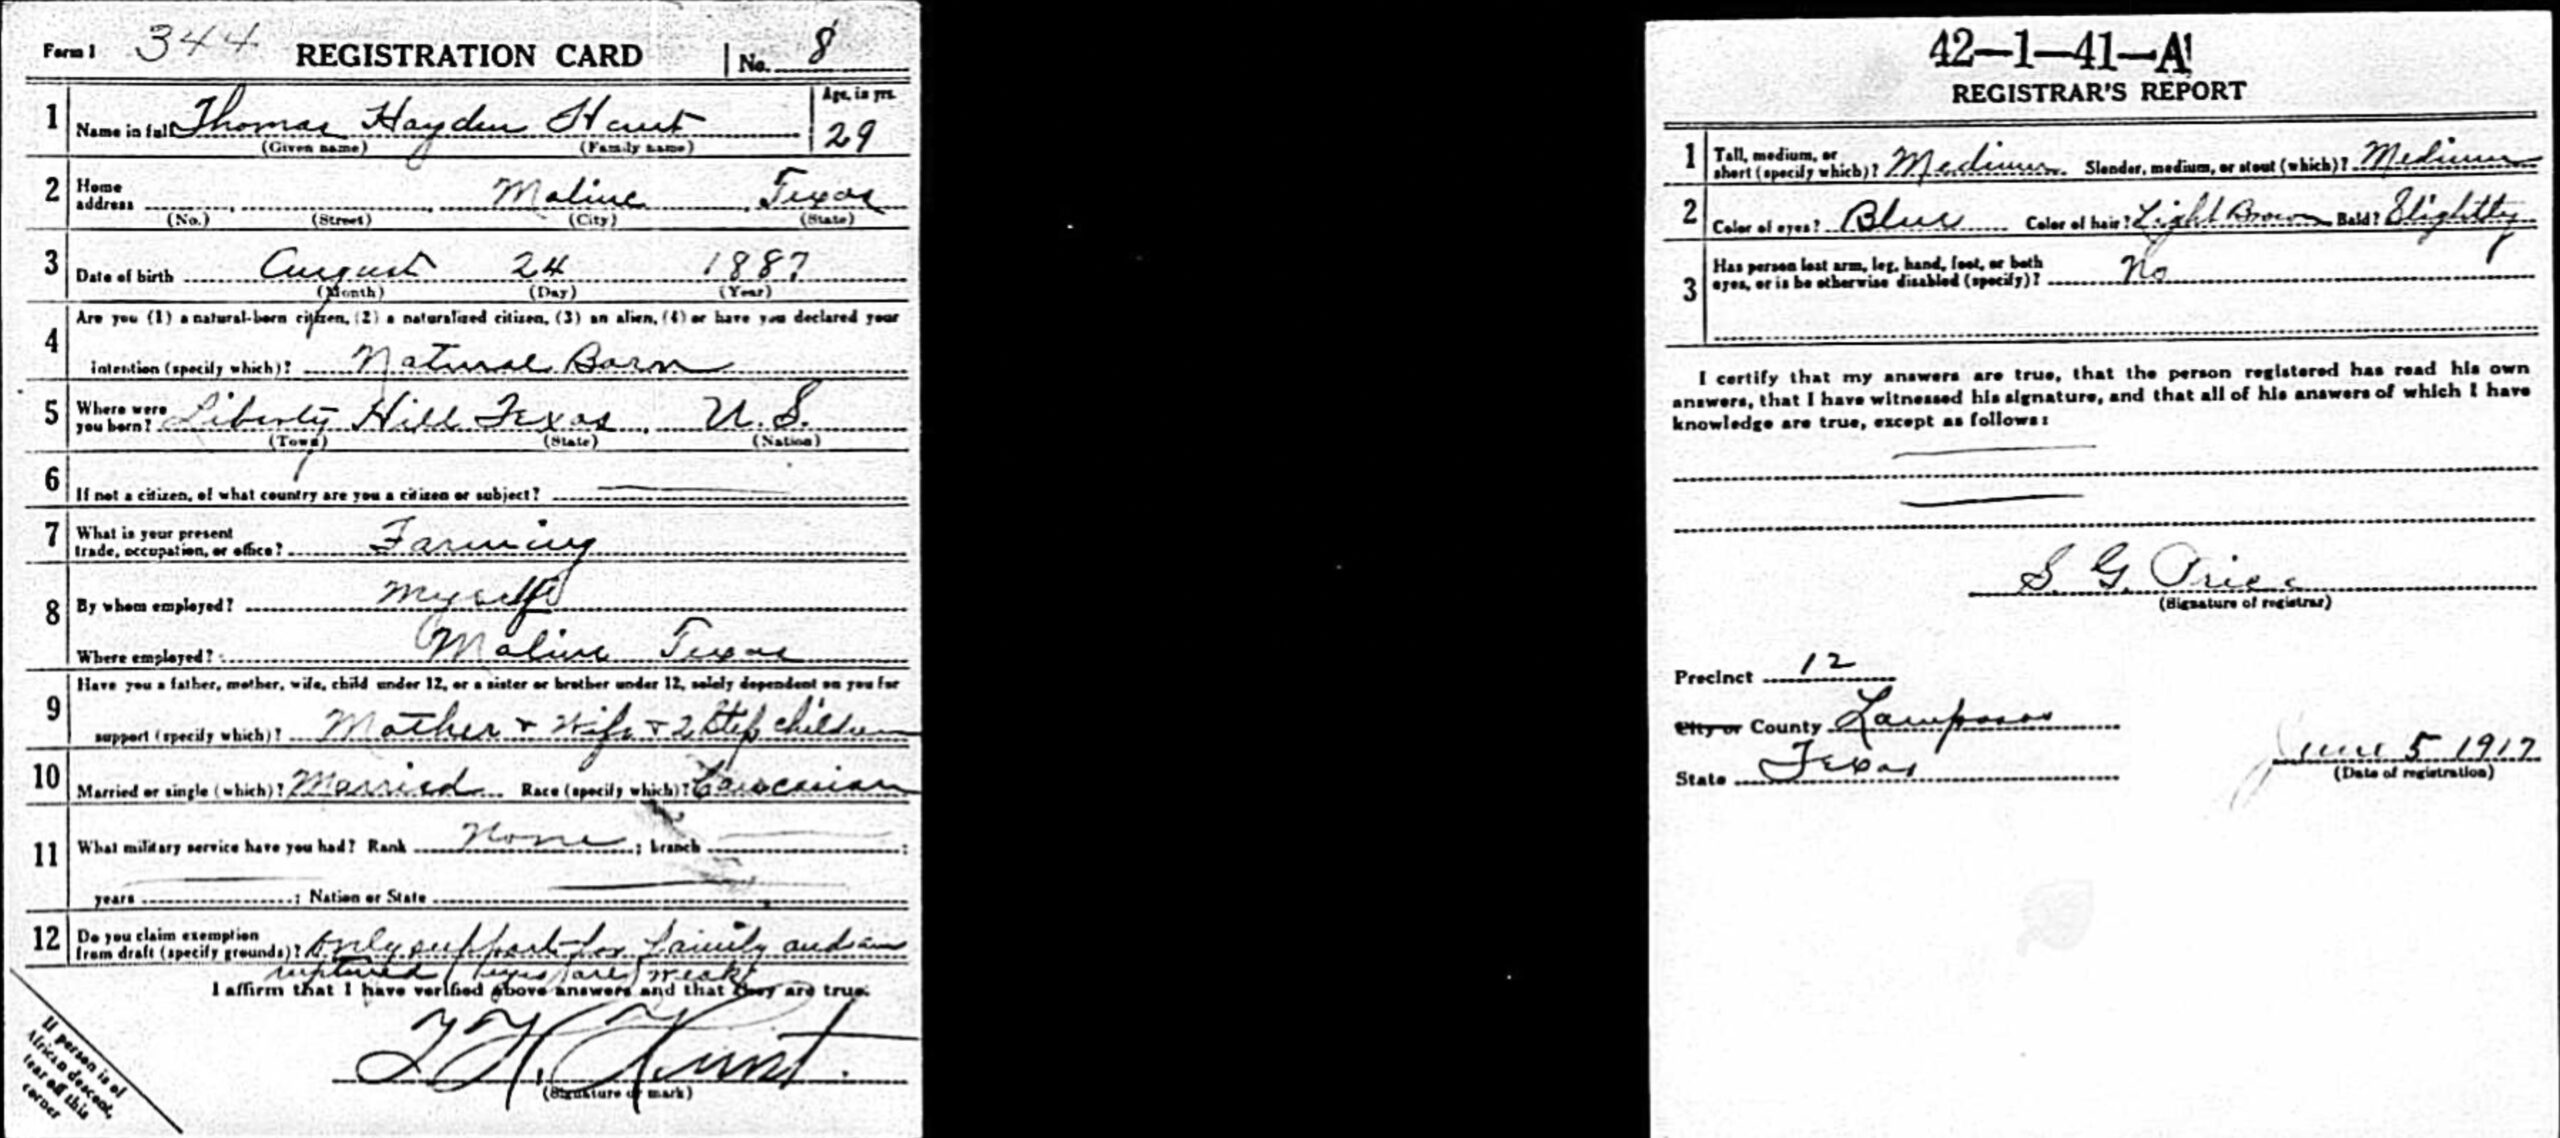 Form 1 344 REGISTRATION CARD No. 8
1 Name in full Thomas Hayden Hunt Age, in yrs. 29
(Given name) (Family name)
2 Home address Moline Texas
(No.) (Street) (City) (State)
3 Date of birth August 24 1887
(Month) (Day) (Year)
4 Are you (1) a natural-born citizen, (2) a naturalized citizen, (3) an alien, (4) or have you declared your
intention (specify which)? Natural Born
5 Where were you born? Liberty Hill Texas, U.S.
(Town) (State) (Nation)
6 If not a citizen, of what country are you a citizen or subject?
7 What is your present
trade, occupation, or office? Farming
8 By whom employed? Myself
Where employed? Moline Texas
9 Have you a father, mother, wife, child under 12, or a sister or brother under 12, solely dependent on you for
support (specify which)? Mother + Wife + 2 Step children
10 Married or single (which)? Married Race (specify which)? Caucasian
11 What military service have you had? Rank None ; branch ;
years ; Nation or State
12 Do you claim exemption
from draft (specify grounds)? Only support for family and am
ruptured eyes are weak
I affirm that I have verified above answers and that they are true.
T. H. Hunt.
(Signature or mark)
If person is of
African descent,
tear off this
corner
42-1-41-A
REGISTRAR'S REPORT
1 Tall, medium, or
short (specify which)? Medium Slender, medium, or stout (which)? Medium
2 Color of eyes? Blue Color of hair? Light Brown Bald? Slightly
3 Has person lost arm, leg, hand, foot, or both
eyes, or is he otherwise disabled (specify)? No
I certify that my answers are true, that the person registered has read his own
answers, that I have witnessed his signature, and that all of his answers of which I have
knowledge are true, except as follows:
S. G. Price
(Signature of registrar)
Precinct 12
City or County Lampasas
State Texas
June 5 1917
(Date of registration)